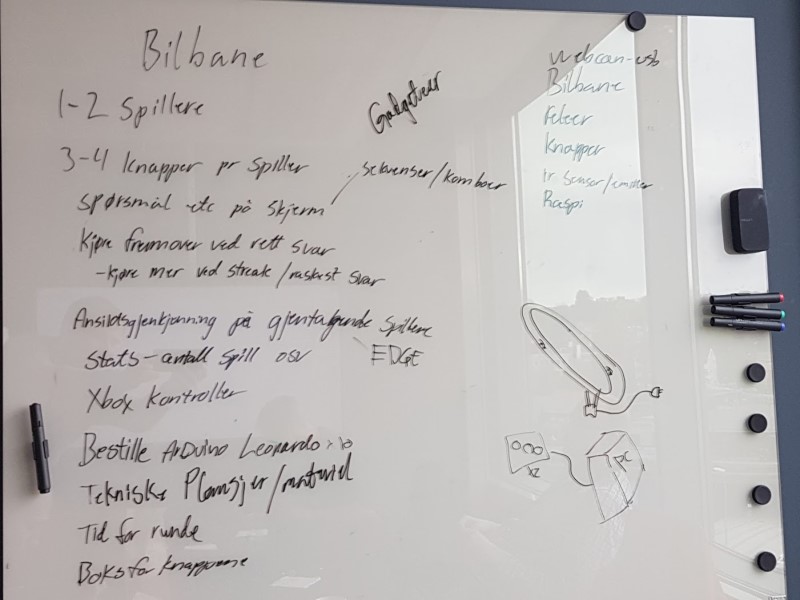 Bilbane
1-2 Spillere
Gadgeteer
3-4 Knapper pr Spiller
Sekvenser/Komboer
Spørsmål etc på Skjerm
Kjøre fremover ved rett svar
-kjøre mer ved streak/raskest svar
Ansiktsgjenkjenning på gjentagende Spillere
Stats-antall spill osv
EDGE
Xbox Kontroller
Bestille Arduino Leonardo
Tekniske Plansjer/materiel
Tid for runde
Boks for knappene
webcam-usb
Bilbane
Knapper
Ir Sensor/emitter
Raspi
X2
PC